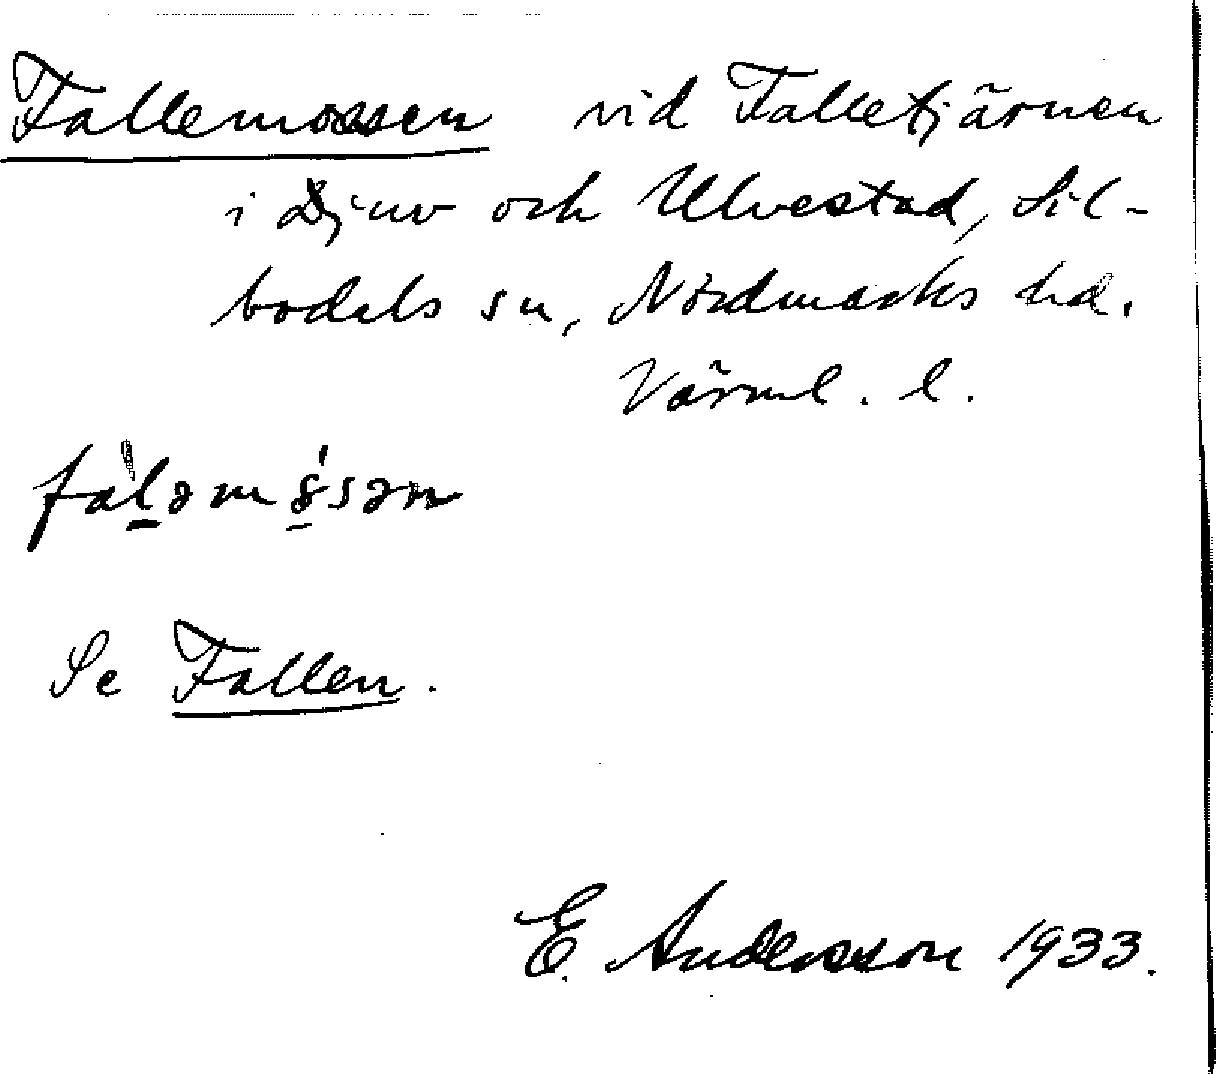 Fallemossen vid Falletjärnen
i Djuv och Ulvestad, Sil-
bodals sn, Nordmarks hd.
Värml. l.
Se Fallen.
E. Andersson 1933.